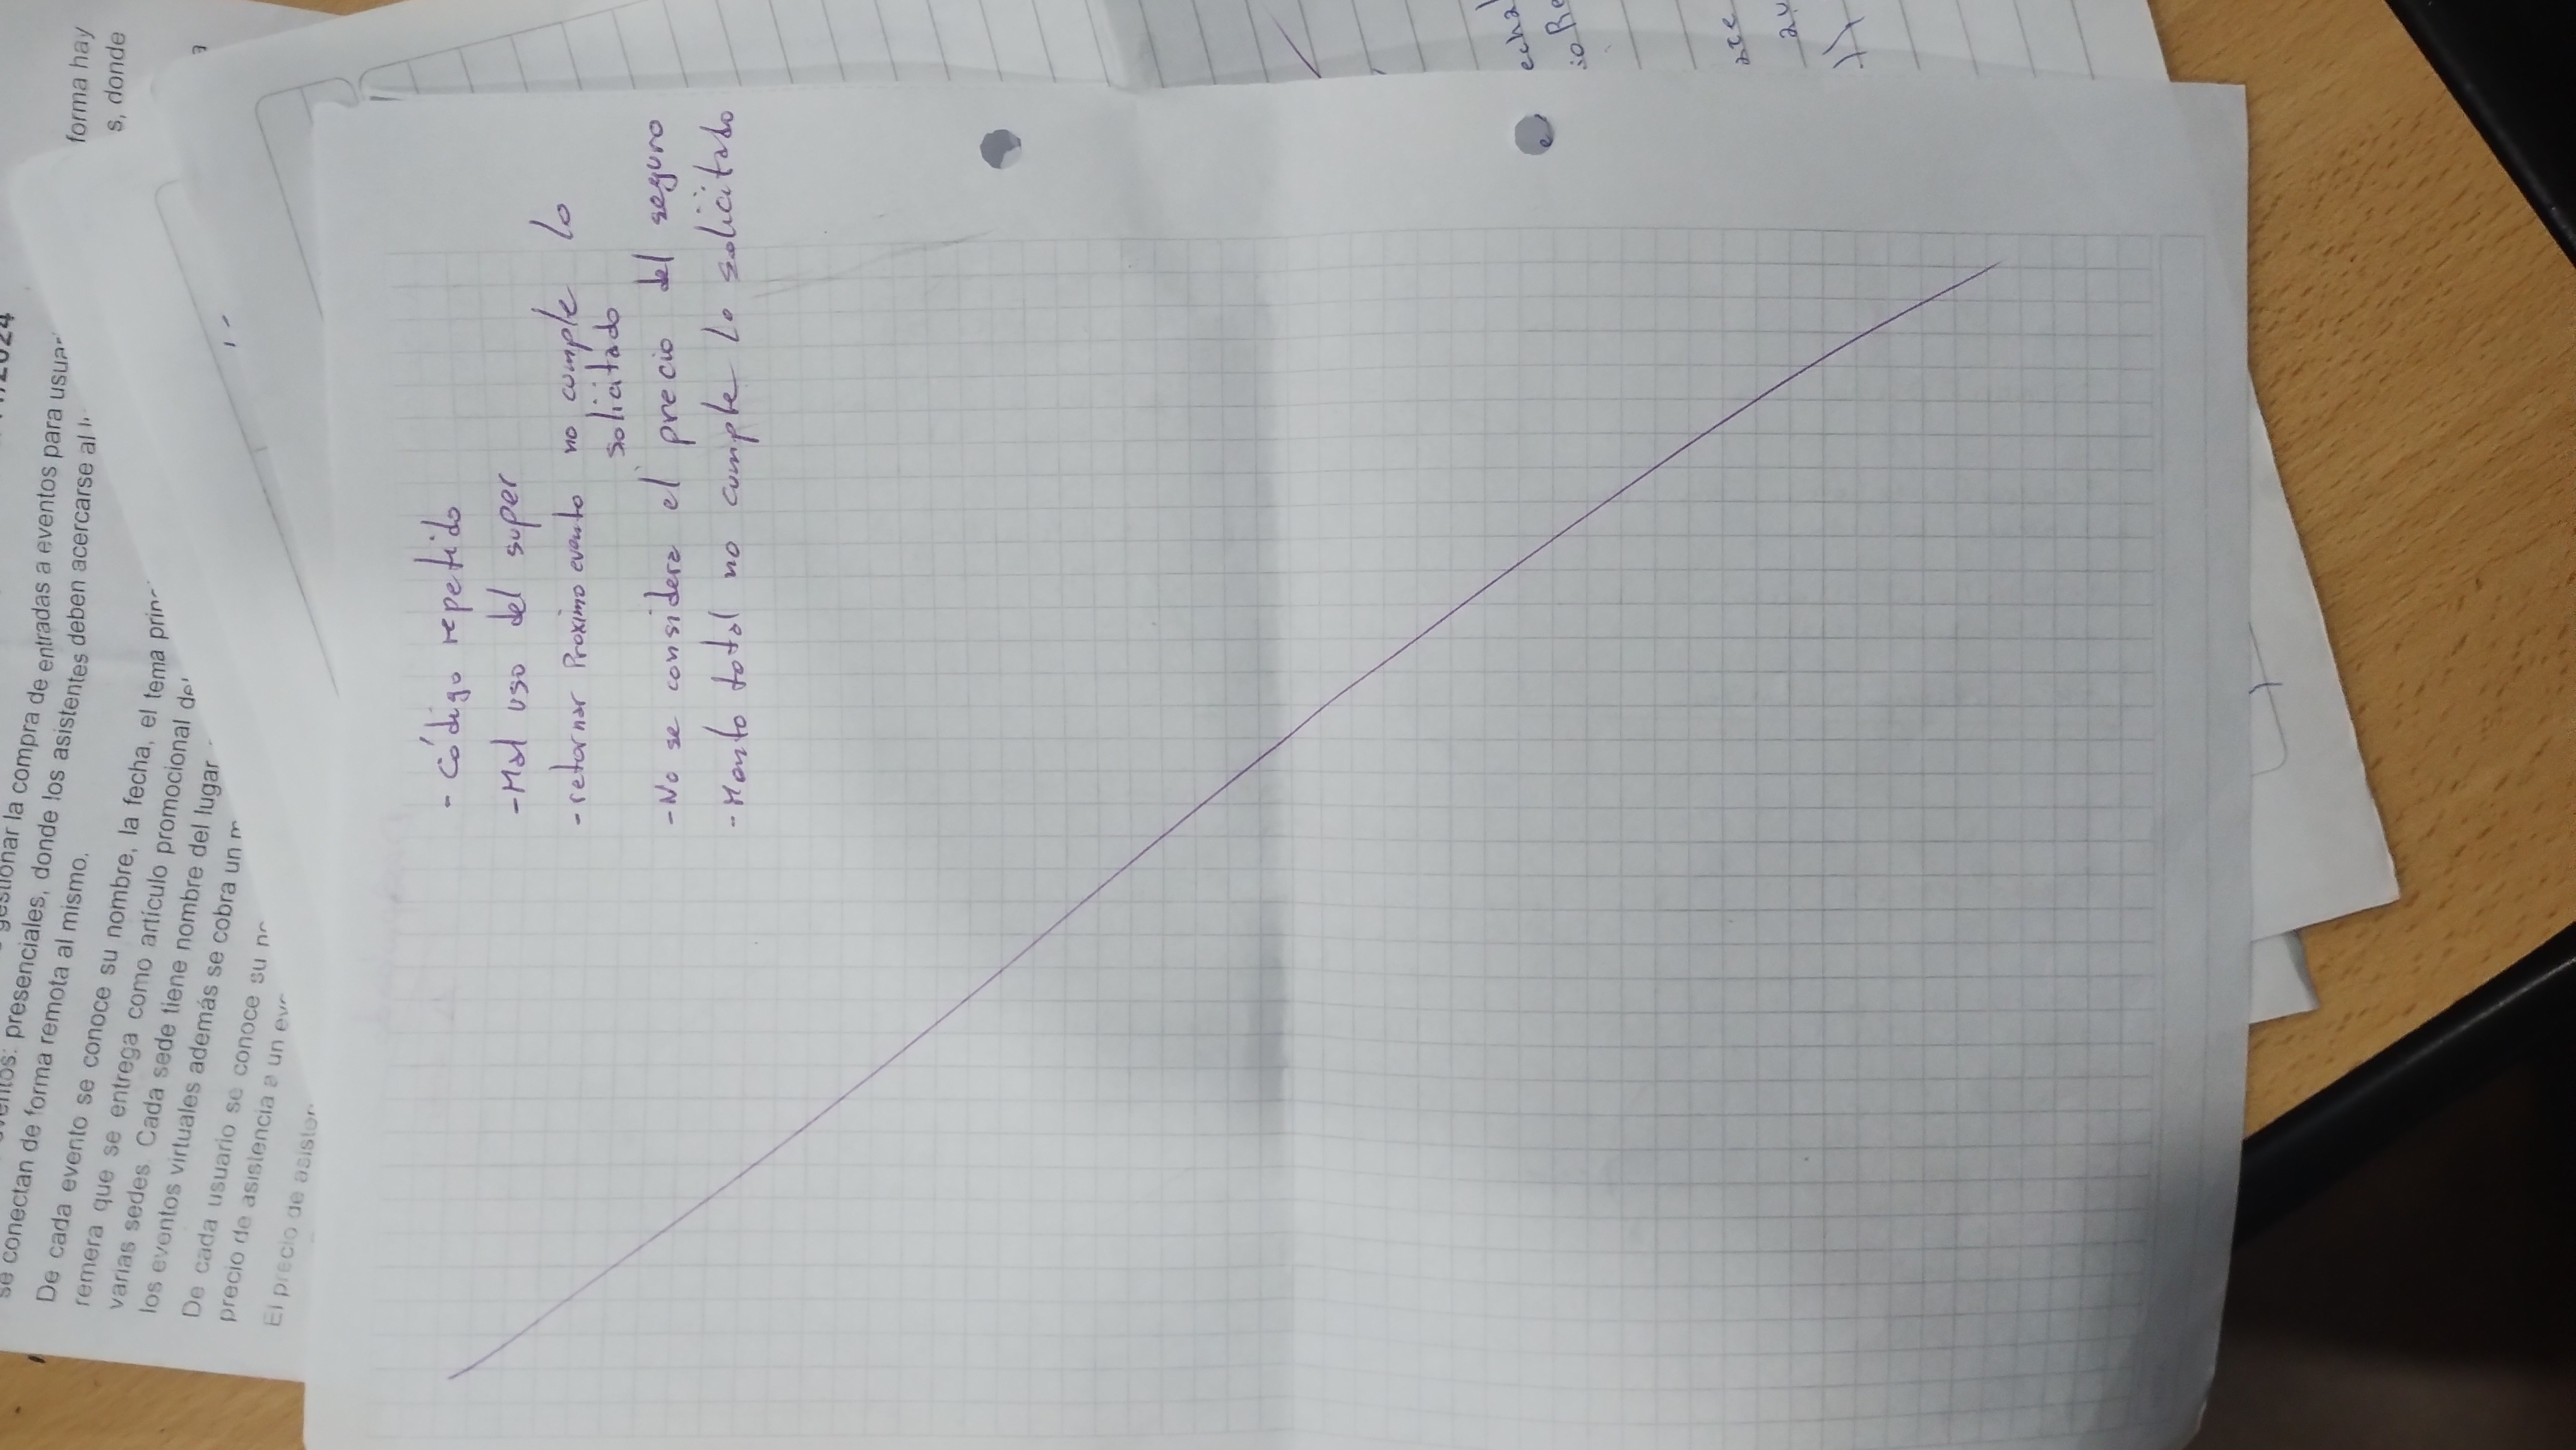 /2024
gestionar la compra de entradas a eventos para
eventos: presenciales, donde los asistentes deben acercarse al
forma hay
se conectan de forma remota al mismo.
s, donde
De cada evento se conoce su nombre, la fecha, el tema
remera que se entrega como artículo promocional
varias sedes. Cada sede tiene nombre del lugar
los eventos virtuales además se cobra un
De cada usuario se conoce su
precio de asistencia a un
El precio de
- Código repetido
- Mal uso del super
- retornar Proximo evento no cumple lo
solicitado
- No se considera el precio del seguro
- Monto total no cumple lo solicitado